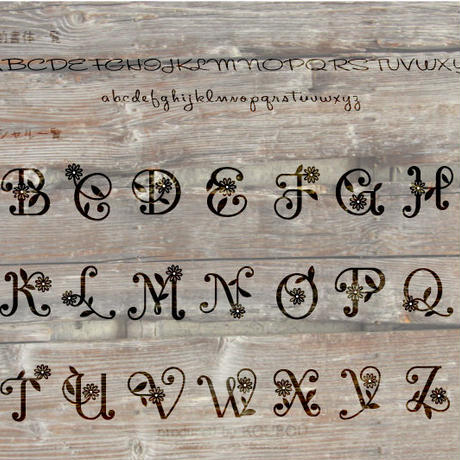 の書体 一覧
ABCDEFGHIJKLMNOPQRSTUVWXY
abcdefghijklmnopqrstuvwxyz
シャル一覧
B C D E F G H
K L M N O P Q
T U V W X Y Z